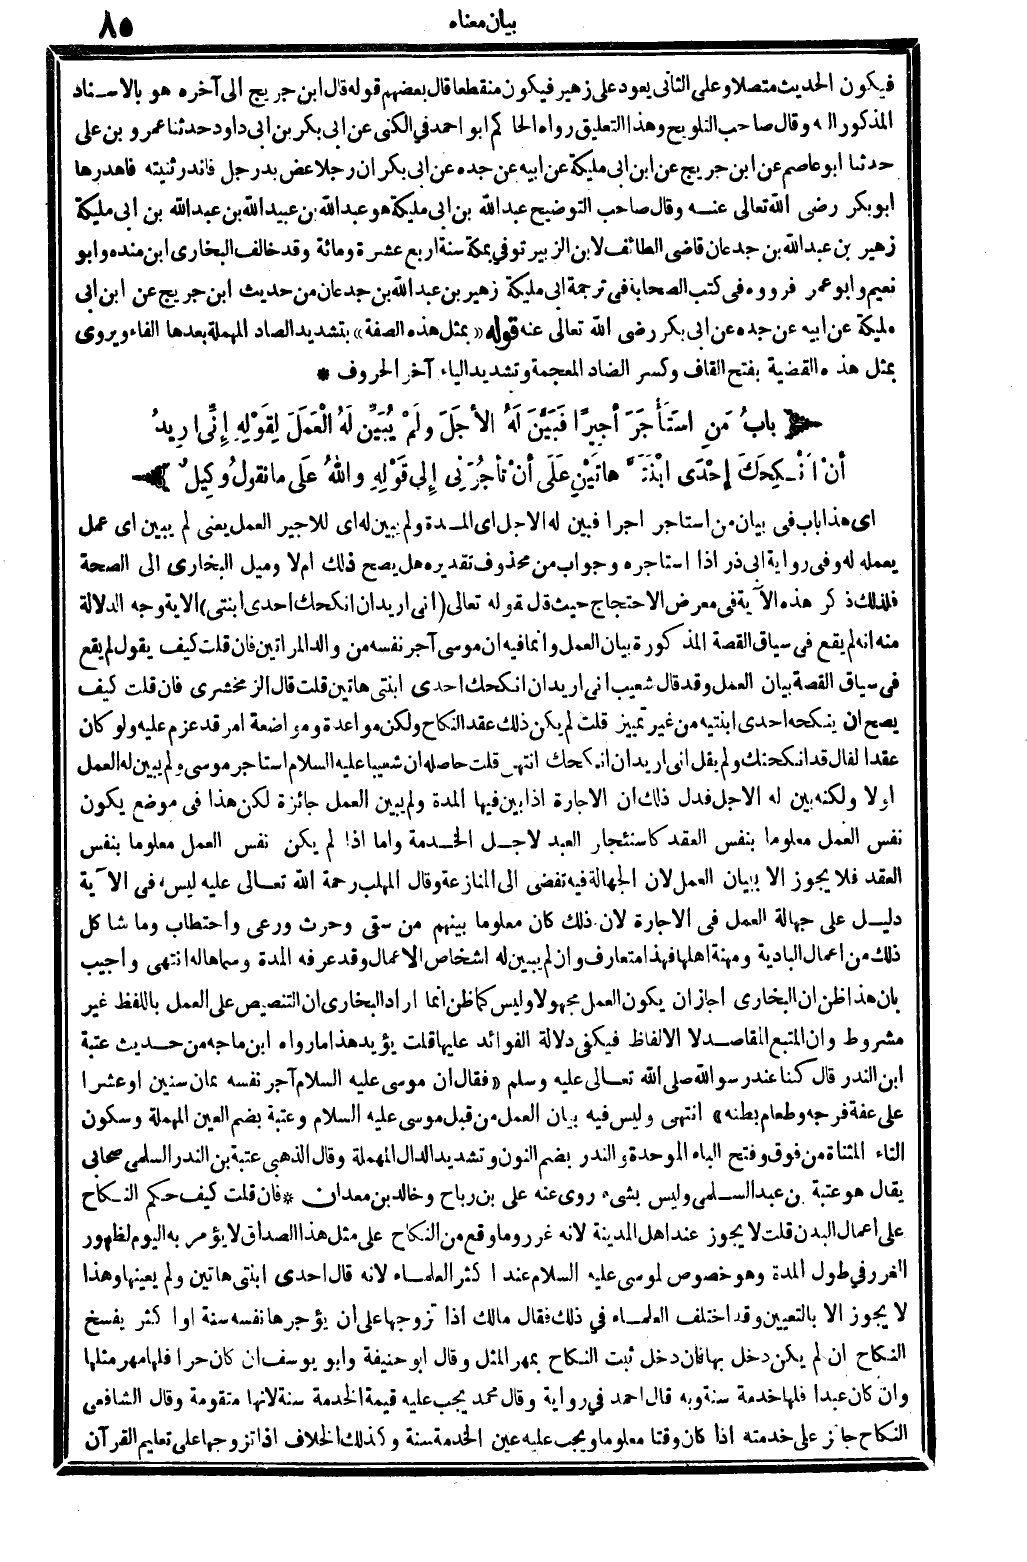 بيان معناه
٨٥
فيكون الحديث متصلا وعلى الثانى يعود على زهير فيكون منقطعا قال بعضهم قوله قال ابن جريج الى آخره هو بالاسناد
المذكور اليه وقال صاحب التلويح وهذا التعليق رواه الحاكم ابو احمد في الكنى عن ابى بكر بن ابى داود حدثنا عمرو بن على
حدثنا ابو عاصم عن ابن جريج عن ابن ابى مليكة عن ابيه عن جده عن ابى بكر ان رجلا عض يد رجل فاندر ثنيته فاهدرها
ابو بكر رضى الله تعالى عنه وقال صاحب التوضيح عبدالله بن ابى مليكة هو عبدالله بن عبيدالله بن عبدالله بن ابى مليكة
زهير بن عبدالله بن جدعان قاضى الطائف لابن الزبير توفي بمكة سنة اربع عشرة ومائة وقد خالف البخارى ابن منده وابو
نعيم وابو عمر فرووه فى كتب الصحابة فى ترجمة ابى مليكة زهير بن عبدالله بن جدعان من حديث ابن جريج عن ابن ابى
مليكة عن ابيه عن جده عن ابى بكر رضى الله تعالى عنه قوله «بمثل هذه الصفة» بتشديد الصاد المهملة بعدها الفاء ويروى
بمثل هذه القضية بفتح القاف وكسر الضاد المعجمة وتشديد الياء آخر الحروف *
بابُ مَنِ استَأْجَرَ أجيرًا فَبَيَّنَ لَهُ الأجَلَ ولَمْ يُبَيِّنْ لَهُ الْعَمَلَ لِقَوْلِهِ إنِّى أرِيدُ
أنْ أنْكِحَكَ إحْدَى ابْنَتَىَّ هاتَيْنِ عَلَى أنْ تأجُرَنِى إلى قَوْلِهِ واللهُ عَلَى ما نقُولُ وكِيلٌ
اى هذا باب فى بيان من استاجر اجيرا فبين له الاجل اى المدة ولم يبين له اى للاجير العمل يعنى لم يبين اى عمل
يعمله له وفى رواية ابى ذر اذا استاجره وجواب من محذوف تقديره هل يصح ذلك ام لا وميل البخارى الى الصحة
فلذلك ذكر هذه الآية فى معرض الاحتجاج حيث قال قوله تعالى (انى اريد ان انكحك احدى ابنتى) الاية وجه الدلالة
منه انه لم يقع فى سياق القصة المذكورة بيان العمل وانما فيه ان موسى آجر نفسه من والد المراتين فان قلت كيف يقول لم يقع
فى سياق القصة بيان العمل وقد قال شعيب انى اريد ان انكحك احدى ابنتى هاتين قلت قال الزمخشرى فان قلت كيف
يصح ان ينكحه احدى ابنتيه من غير تمييز قلت لم يكن ذلك عقد النكاح ولكن مواعدة ومواضعة امر قد عزم عليه ولو كان
عقدا لقال قد انكحتك ولم يقل انى اريد ان انكحك انتهى قلت حاصله ان شعيبا عليه السلام استاجر موسى ولم يبين له العمل
اولا ولكنه بين له الاجل فدل ذلك ان الاجارة اذا بين فيها المدة ولم يبين العمل جائزة لكن هذا فى موضع يكون
نفس العمل معلوما بنفس العقد كاستئجار العبد لاجل الخدمة واما اذا لم يكن نفس العمل معلوما بنفس
العقد فلا يجوز الا ببيان العمل لان الجهالة فيه تفضى الى المنازعة وقال المهلب رحمة الله تعالى عليه ليس فى الآية
دليل على جهالة العمل فى الاجارة لان ذلك كان معلوما بينهم من سقى وحرث ورعى واحتطاب وما شاكل
ذلك من اعمال البادية ومهنة اهلها فهذا متعارف وان لم يبين له اشخاص الاعمال وقد عرفه المدة وسماها له انتهى واجيب
بان هذا ظن ان البخارى اجاز ان يكون العمل مجهولا وليس كما ظن انما اراد البخارى ان التنصيص على العمل باللفظ غير
مشروط وان المتبع المقاصد لا الالفاظ فيكفى دلالة الفوائد عليها قلت يؤيد هذا ما رواه ابن ماجه من حديث عتبة
ابن الندر قال كنا عند رسو الله صلى الله تعالى عليه وسلم «فقال ان موسى عليه السلام آجر نفسه ثمان سنين او عشرا
على عفة فرجه وطعام بطنه» انتهى وليس فيه بيان العمل من قبل موسى عليه السلام وعتبة بضم العين المهملة وسكون
التاء المثناة من فوق وفتح الباء الموحدة والندر بضم النون وتشديد الدال المهملة وقال الذهبى عتبة بن الندر السلمى صحابى
يقال هو عتبة بن عبد السلمى وليس بشىء روى عنه على بن رباح وخالد بن معدان * فان قلت كيف حكم النكاح
على اعمال البدن قلت لا يجوز عند اهل المدينة لانه غرر وما وقع من النكاح على مثل هذا الصداق لا يؤمر به اليوم لظهور
الغرر في طول المدة وهو خصوص لموسى عليه السلام عند اكثر العلماء لانه قال احدى ابنتى هاتين ولم يعينها وهذا
لا يجوز الا بالتعيين وقد اختلف العلماء في ذلك فقال مالك اذا تزوجها على ان يؤجرها نفسه سنة او اكثر يفسخ
النكاح ان لم يكن دخل بها فان دخل ثبت النكاح بمهر المثل وقال ابو حنيفة وابو يوسف ان كان حرا فلها مهر مثلها
وان كان عبدا فلها خدمة سنة وبه قال احمد في رواية وقال محمد يجب عليه قيمة الخدمة سنة لانها متقومة وقال الشافعى
النكاح جائز على خدمته اذا كان وقتا معلوما ويجب عليه عين الخدمة سنة وكذلك الخلاف اذا تزوجها على تعليم القرآن